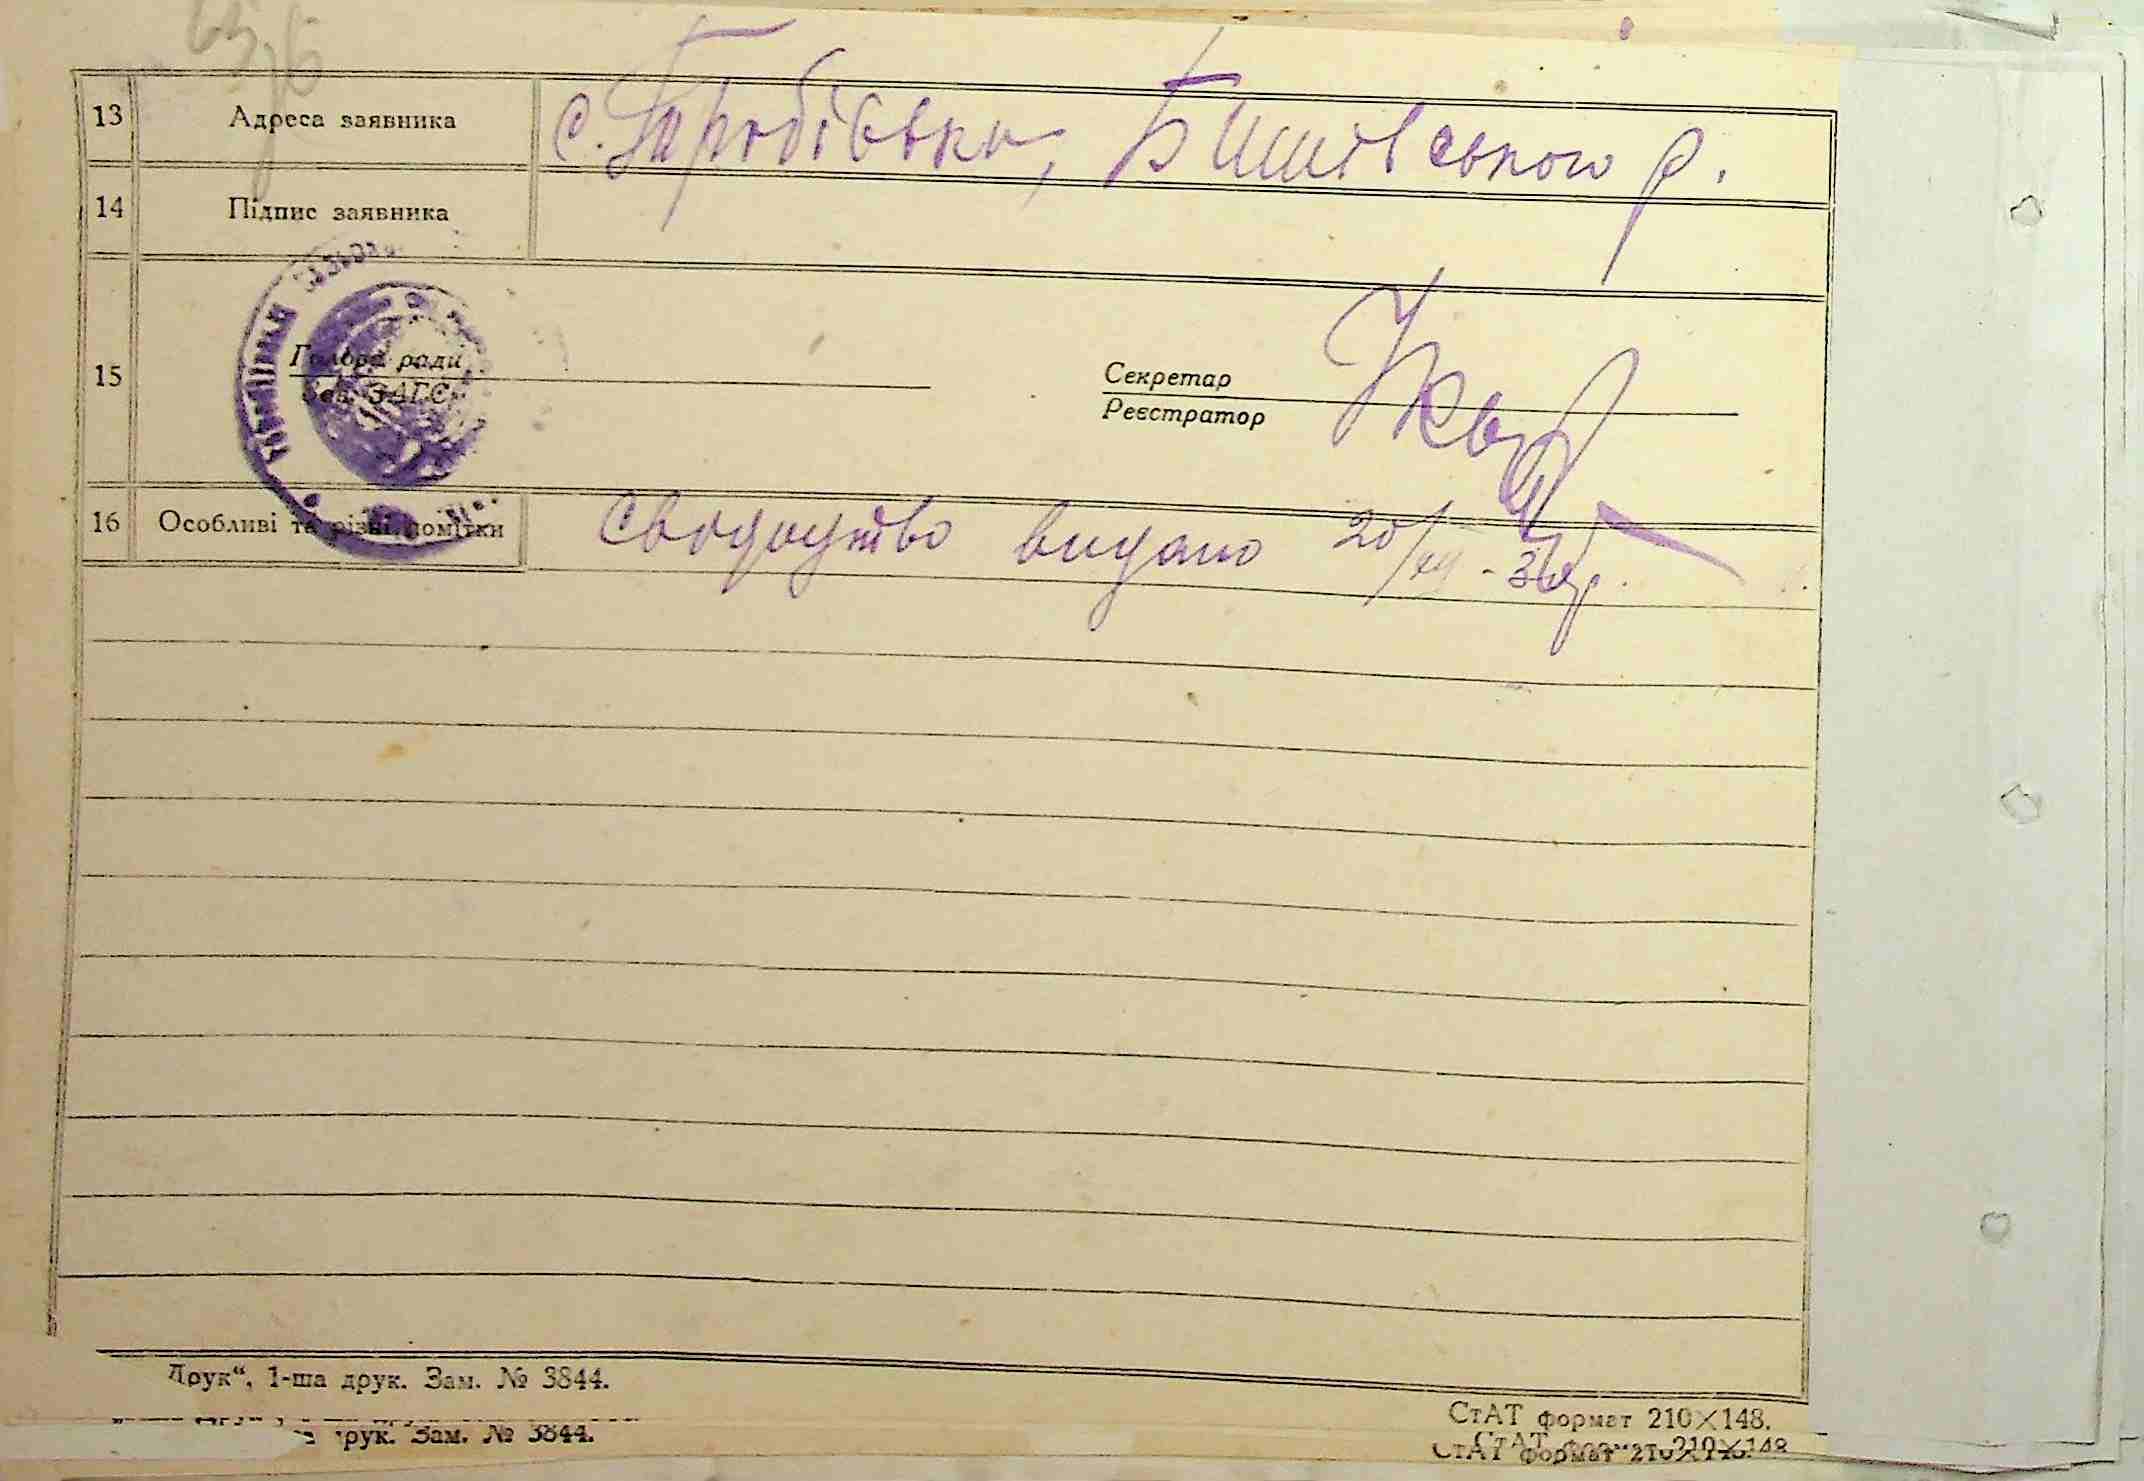 13 Адреса заявника с. Грабівка, Бишівського р.
14 Підпис заявника
15 Голова ради
Зав. ЗАГС
Секретар
Реєстратор
16 Особливі та різні помітки Свидоцтво видано 20/
Друк“, 1-ша друк. Зам. № 3844.
СтАТ формат 210×148.
рук. Зам. № 3844.
СтАТ формат 210×148.